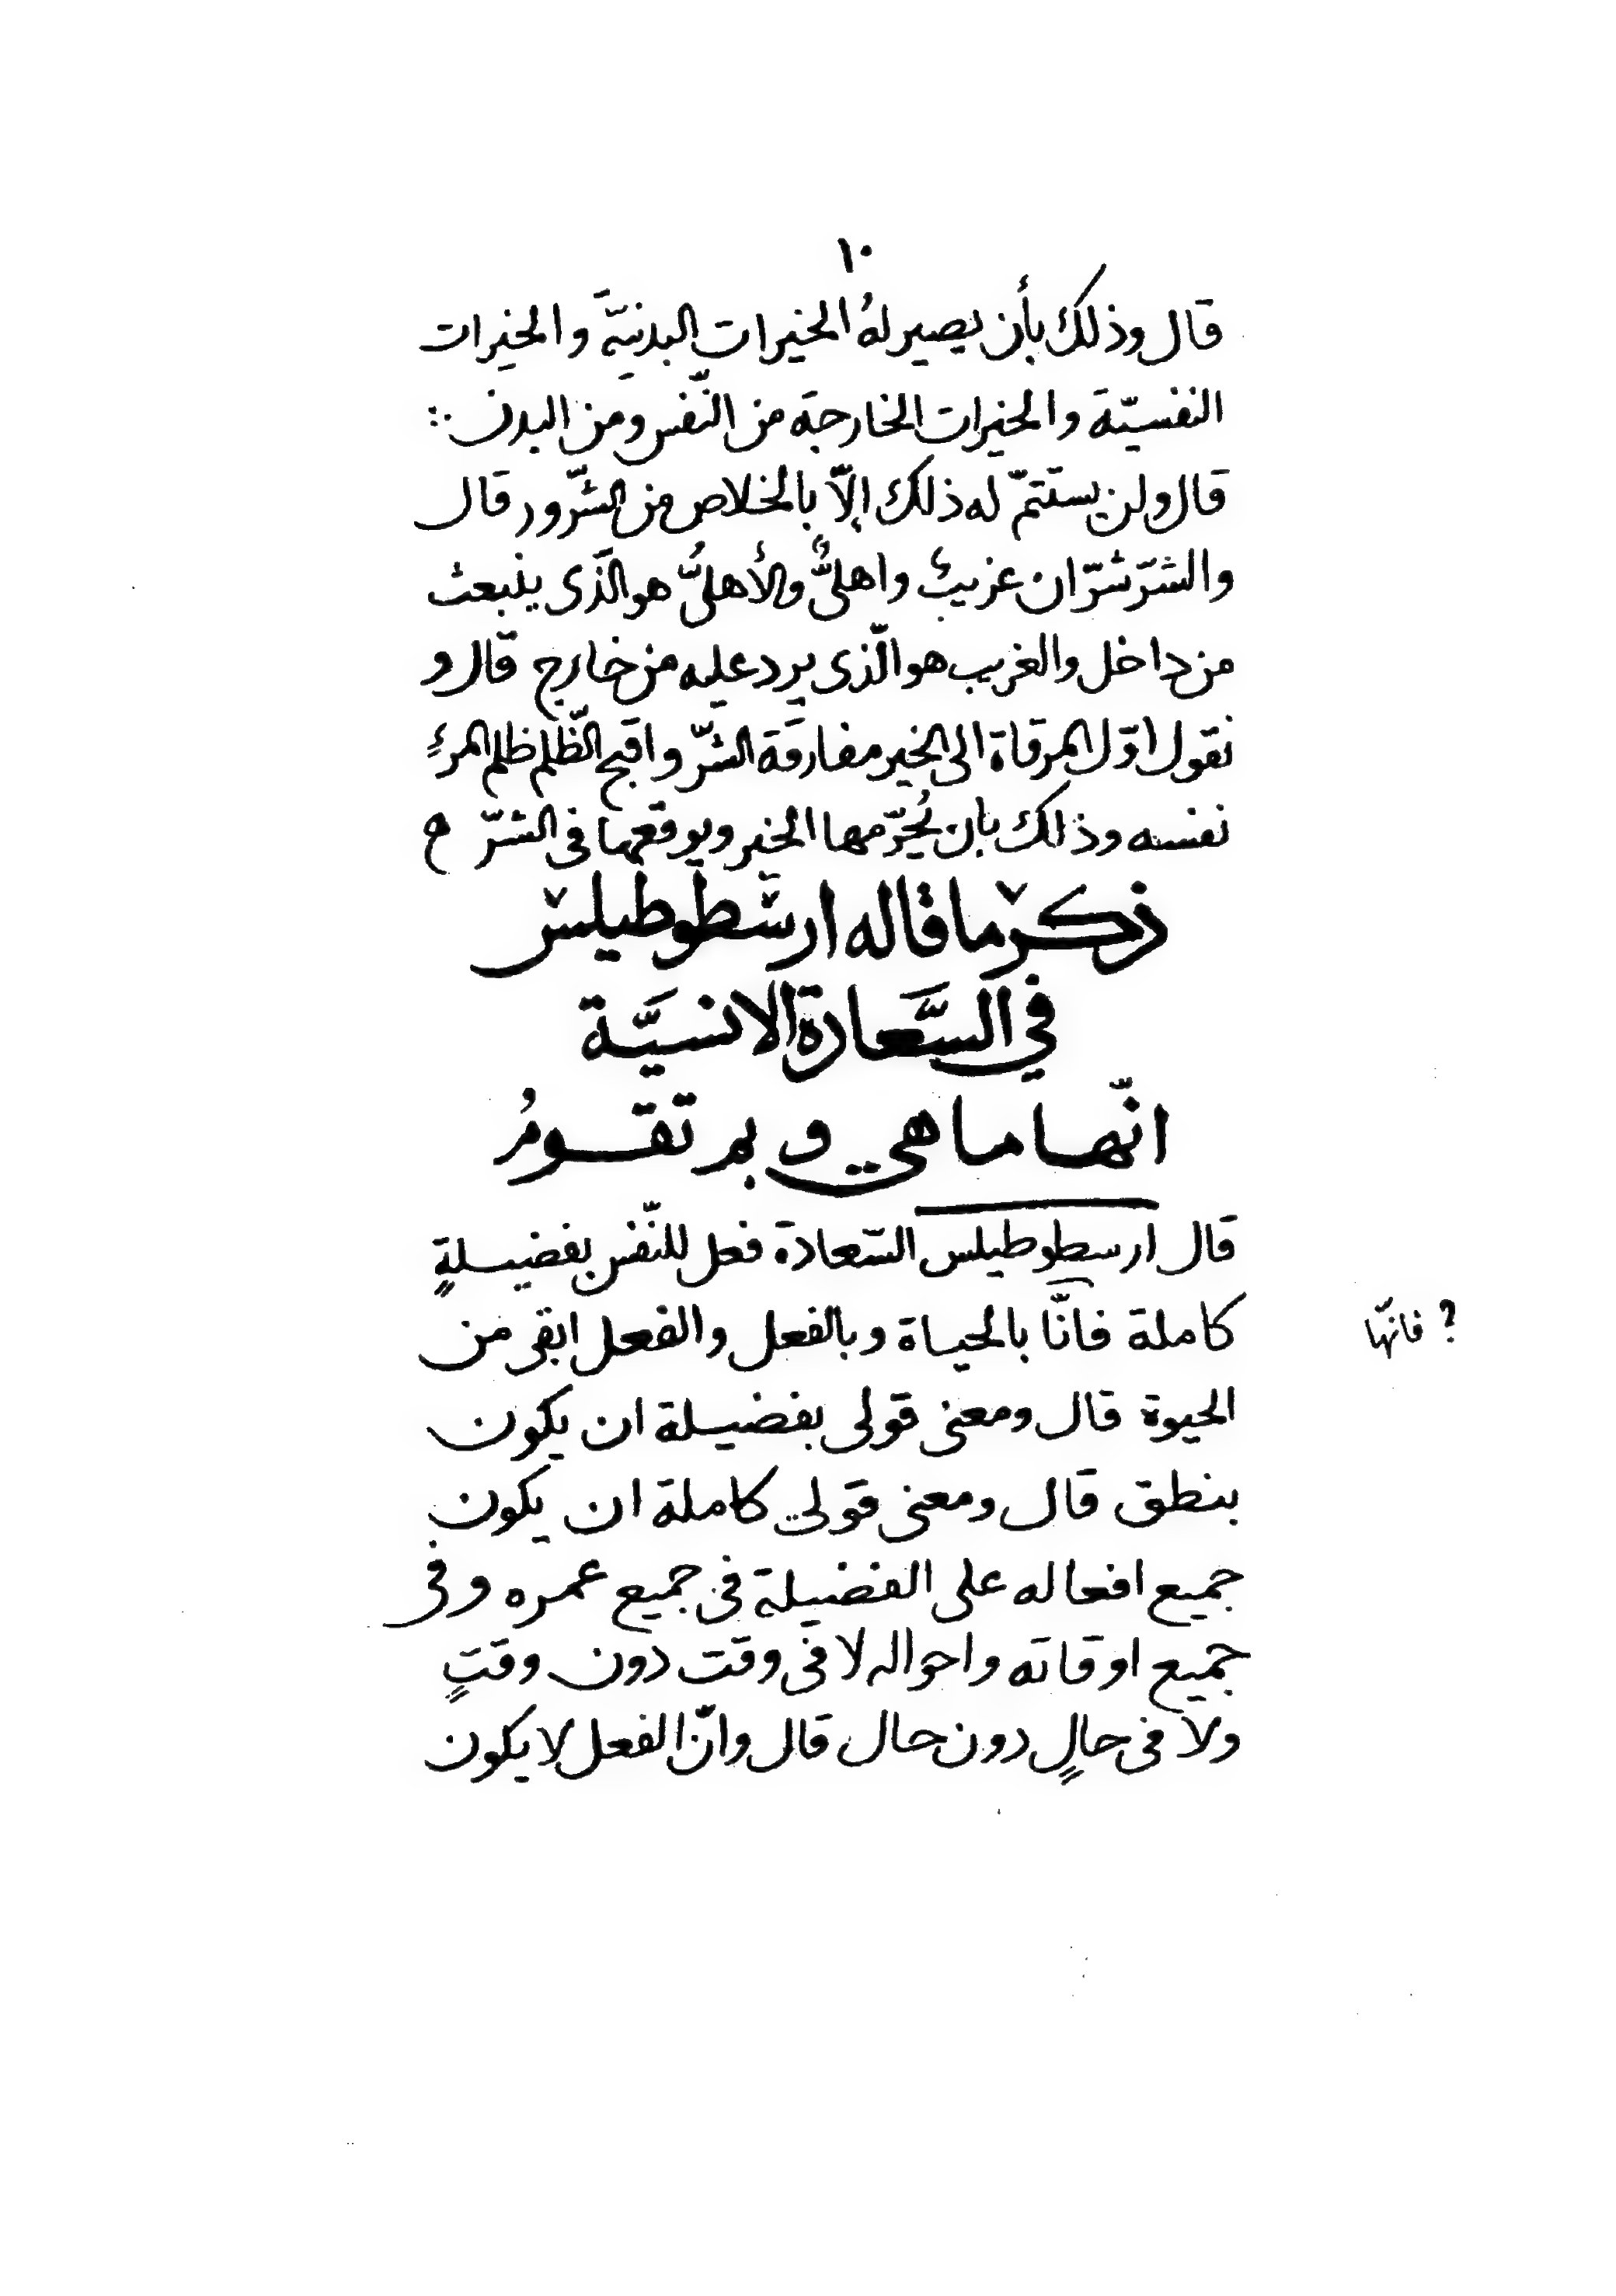 ١٠
قال وذلك بأن يصير لهُ الخيرات البدنيّة والخيرات
النفسيّة والخيرات الخارجة من النّفس ومن البدن ∴
قال ولن يستتمّ له ذلك إلّا بالخلاص من الشّرور قال
والشرّ شرّان غريبٌ واهليٌّ والأهليُّ هو الّذى ينبعث
من داخل والغريب هو الّذى يرد عليه من خارج قال و
نقول اوّل المرقاة الى الخير مفارقة الشرّ واقبح الظّلم ظلم المرءِ
نفسه وذلك بان يُحرّمها الخير ويوقعها فى الشرّ ح
ذكر ما قاله ارسطوطيلس
في السَّعادة الانسيَّة
انّها ما هي وبم تقومُ
قال ارسطوطيلس السّعادة فعل للنّفس بفضيلةٍ
كاملة فانّا بالحياة وبالفعل والفعل ابقى من
؟ فانّها
الحيوة قال ومعنى قولى بفضيلة ان يكون
بنطق قال ومعنى قولى كاملة ان يكون
جميع افعاله على الفضيلة فى جميع عمره وفى
جميع اوقاته واحواله لا فى وقت دون وقتٍ
ولا فى حالٍ دون حال قال وانّ الفعل لا يكون